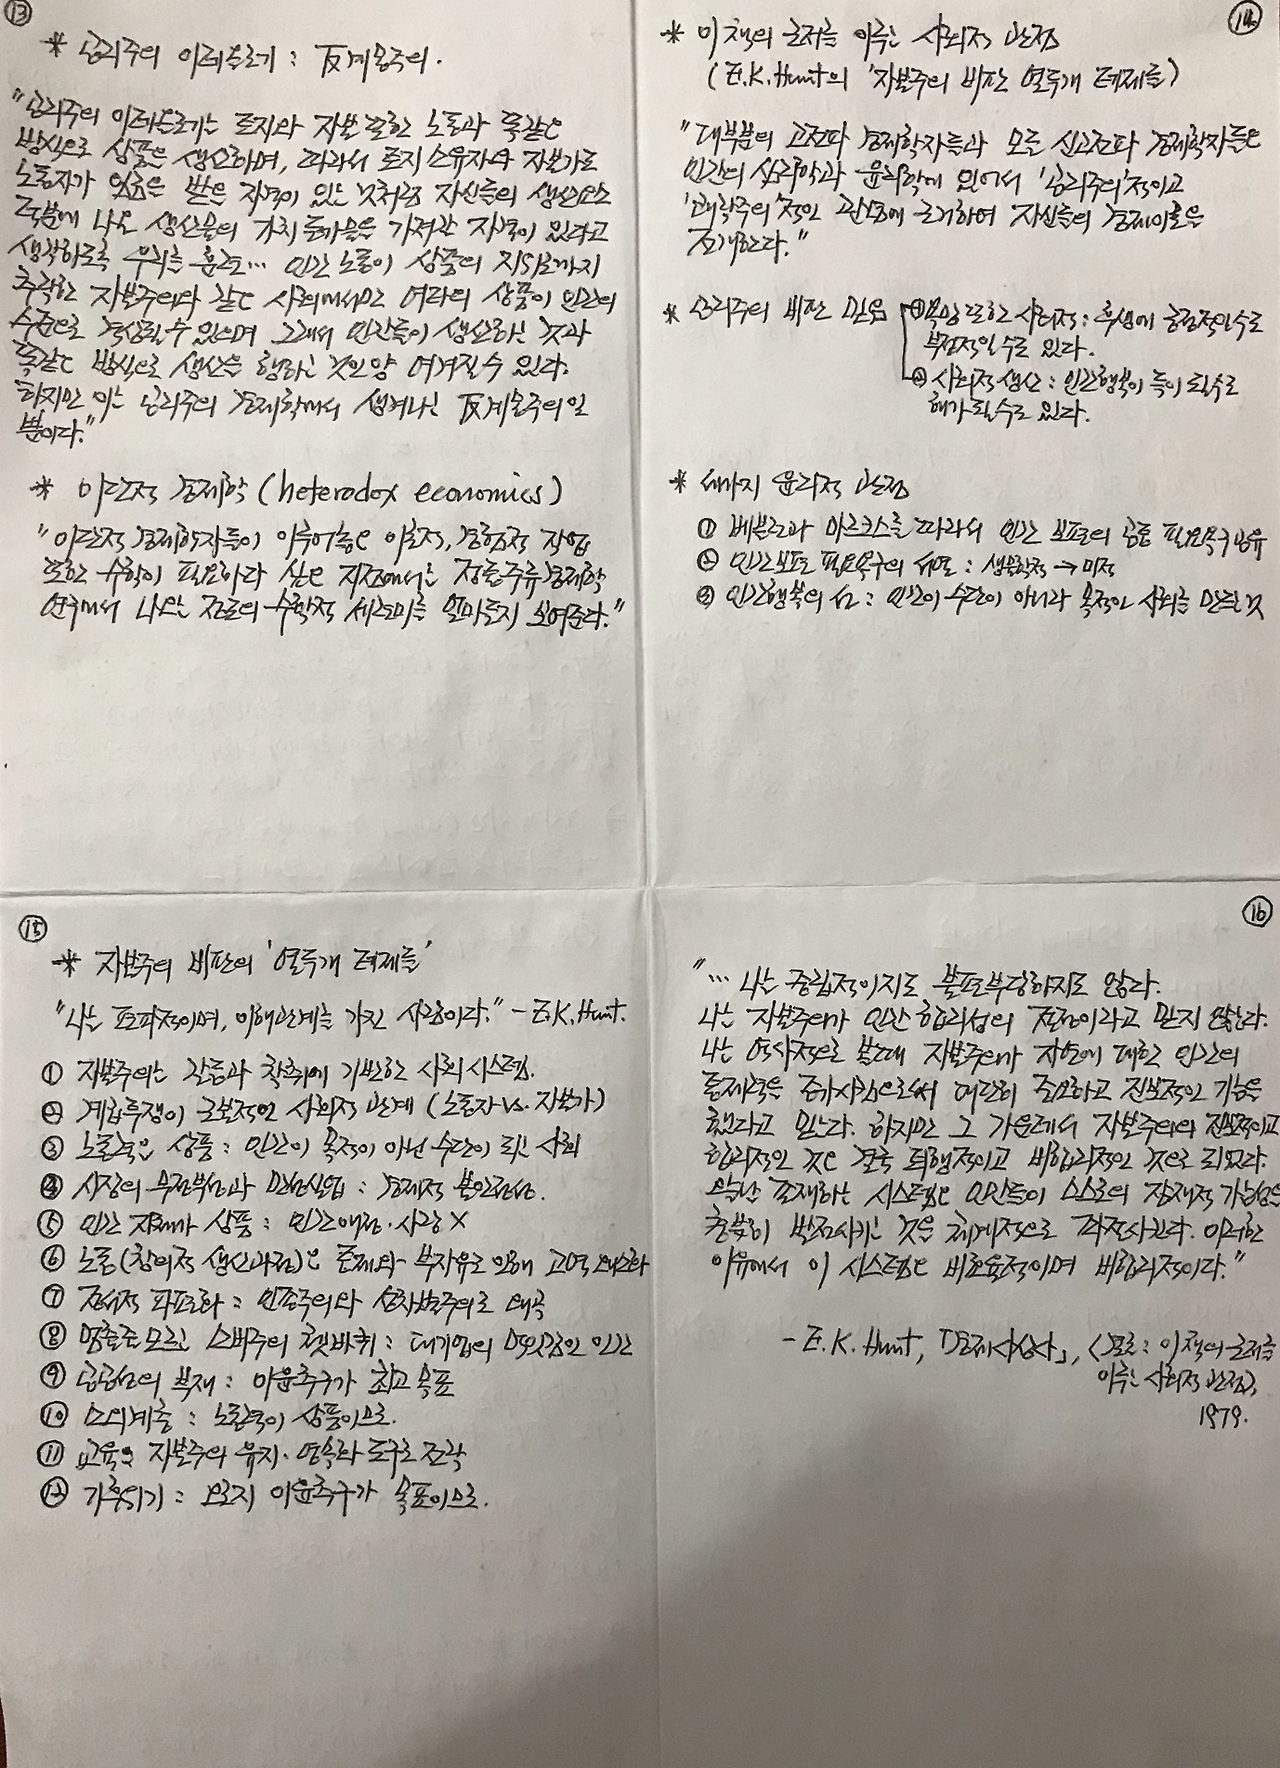 ⑬
* 공리주의 이데올로기 : 反계몽주의.
"공리주의 이데올로기는 토지와 자본 또한 노동과 똑같은
방식으로 상품을 생산하며, 따라서 토지 소유자와 자본가도
노동자가 임금을 받을 자격이 있는 것처럼 자신들의 생산요소
덕분에 나온 생산물의 가치만큼을 가져갈 자격이 있다고
생각하도록 우리를 유도… 인간 노동이 상품의 지위로까지
추락한 자본주의와 같은 사회에서만 여타의 상품이 인간의
수준으로 격상될 수 있으며 그래서 인간들이 생산하는 것과
똑같은 방식으로 생산을 행하는 것인양 여겨질 수 있다.
하지만 이는 공리주의 경제학에서 생겨나는 反계몽주의일
뿐이다."
* 이단적 경제학 (heterodox economics)
"이단적 경제학자들이 이루어놓은 이론적, 경험적 작업
또한 수학이 필요하다 싶은 지점에서는 정통주류경제학
연구에서 나오는 정도의 수학적 세련미를 얼마든지 보여준다."
⑭
* 이 책의 근저를 이루는 사회적 관점
(E.K.Hunt의 '자본주의 비판 열두개 테제들)
"대부분의 고전파 경제학자들과 모든 신고전파 경제학자들은
인간의 심리학과 윤리학에 있어서 '공리주의'적이고
'쾌락주의'적인 관념에 근거하여 자신들의 경제이론을
전개한다."
* 공리주의 비판 믿음 ① 욕망 또한 사회적 : 후생에 긍정적일수도
부정적일 수도 있다.
② 사회적 생산 : 인간행복이 득이 될수도
해가 될수도 있다.
* 세가지 윤리적 관점
① 베블런과 마르크스를 따라서 인간 보편의 공통 필요욕구 공유
② 인간보편 필요욕구의 서열 : 생물학적 → 미적
③ 인간행복의 선 : 인간이 수단이 아니라 목적인 사회를 만들 것
⑮
* 자본주의 비판의 '열두개 테제들'
"나는 당파적이며, 이해관계를 가진 사람이다." - E.K.Hunt.
① 자본주의는 갈등과 착취에 기반한 사회 시스템.
② 계급투쟁이 근본적인 사회적 관계 (노동자 vs. 자본가)
③ 노동력은 상품 : 인간이 목적이 아닌 수단이 되는 사회
④ 시장의 무정부성과 만성실업 : 경제적 불안정성.
⑤ 인간 자체가 상품 : 인간애정·사랑 X
⑥ 노동(창의적 생산과정)은 통제와 부자유로 인해 고역
⑦ 정서적 파편화 : 인종주의와 성차별주의로 왜곡
⑧ 멈출줄 모르는 소비주의 쳇바퀴 : 대기업의 인간
⑨ 공공선의 부재 : 이윤추구가 최고 목표
⑩ 소외계층 : 노동력이 상품이므로.
⑪ 교육은 자본주의 유지·영속화 도구로 전락
⑫ 기후위기 : 오로지 이윤추구가 목표이므로.
⑯
"… 나는 중립적이지도 불편부당하지도 않다.
나는 자본주의가 인간 합리성의 전형이라고 믿지 않는다.
나는 역사적으로 볼 때 자본주의가 자연에 대한 인간의
통제력을 증가시킴으로써 대단히 중요하고 진보적인 기능을
했다고 믿는다. 하지만 그 가운데서 자본주의의 진보적이고
합리적인 것은 결국 퇴행적이고 비합리적인 것으로 되었다.
오늘날 존재하는 시스템은 인간들이 스스로의 잠재적 가능성을
충분히 발전시키는 것을 체계적으로 좌절시킨다. 이러한
이유에서 이 시스템은 비효율적이며 비합리적이다."
- E.K.Hunt, 「경제사상사」, <모토 : 이 책의 근저를
이루는 사회적 관점>,
1979.